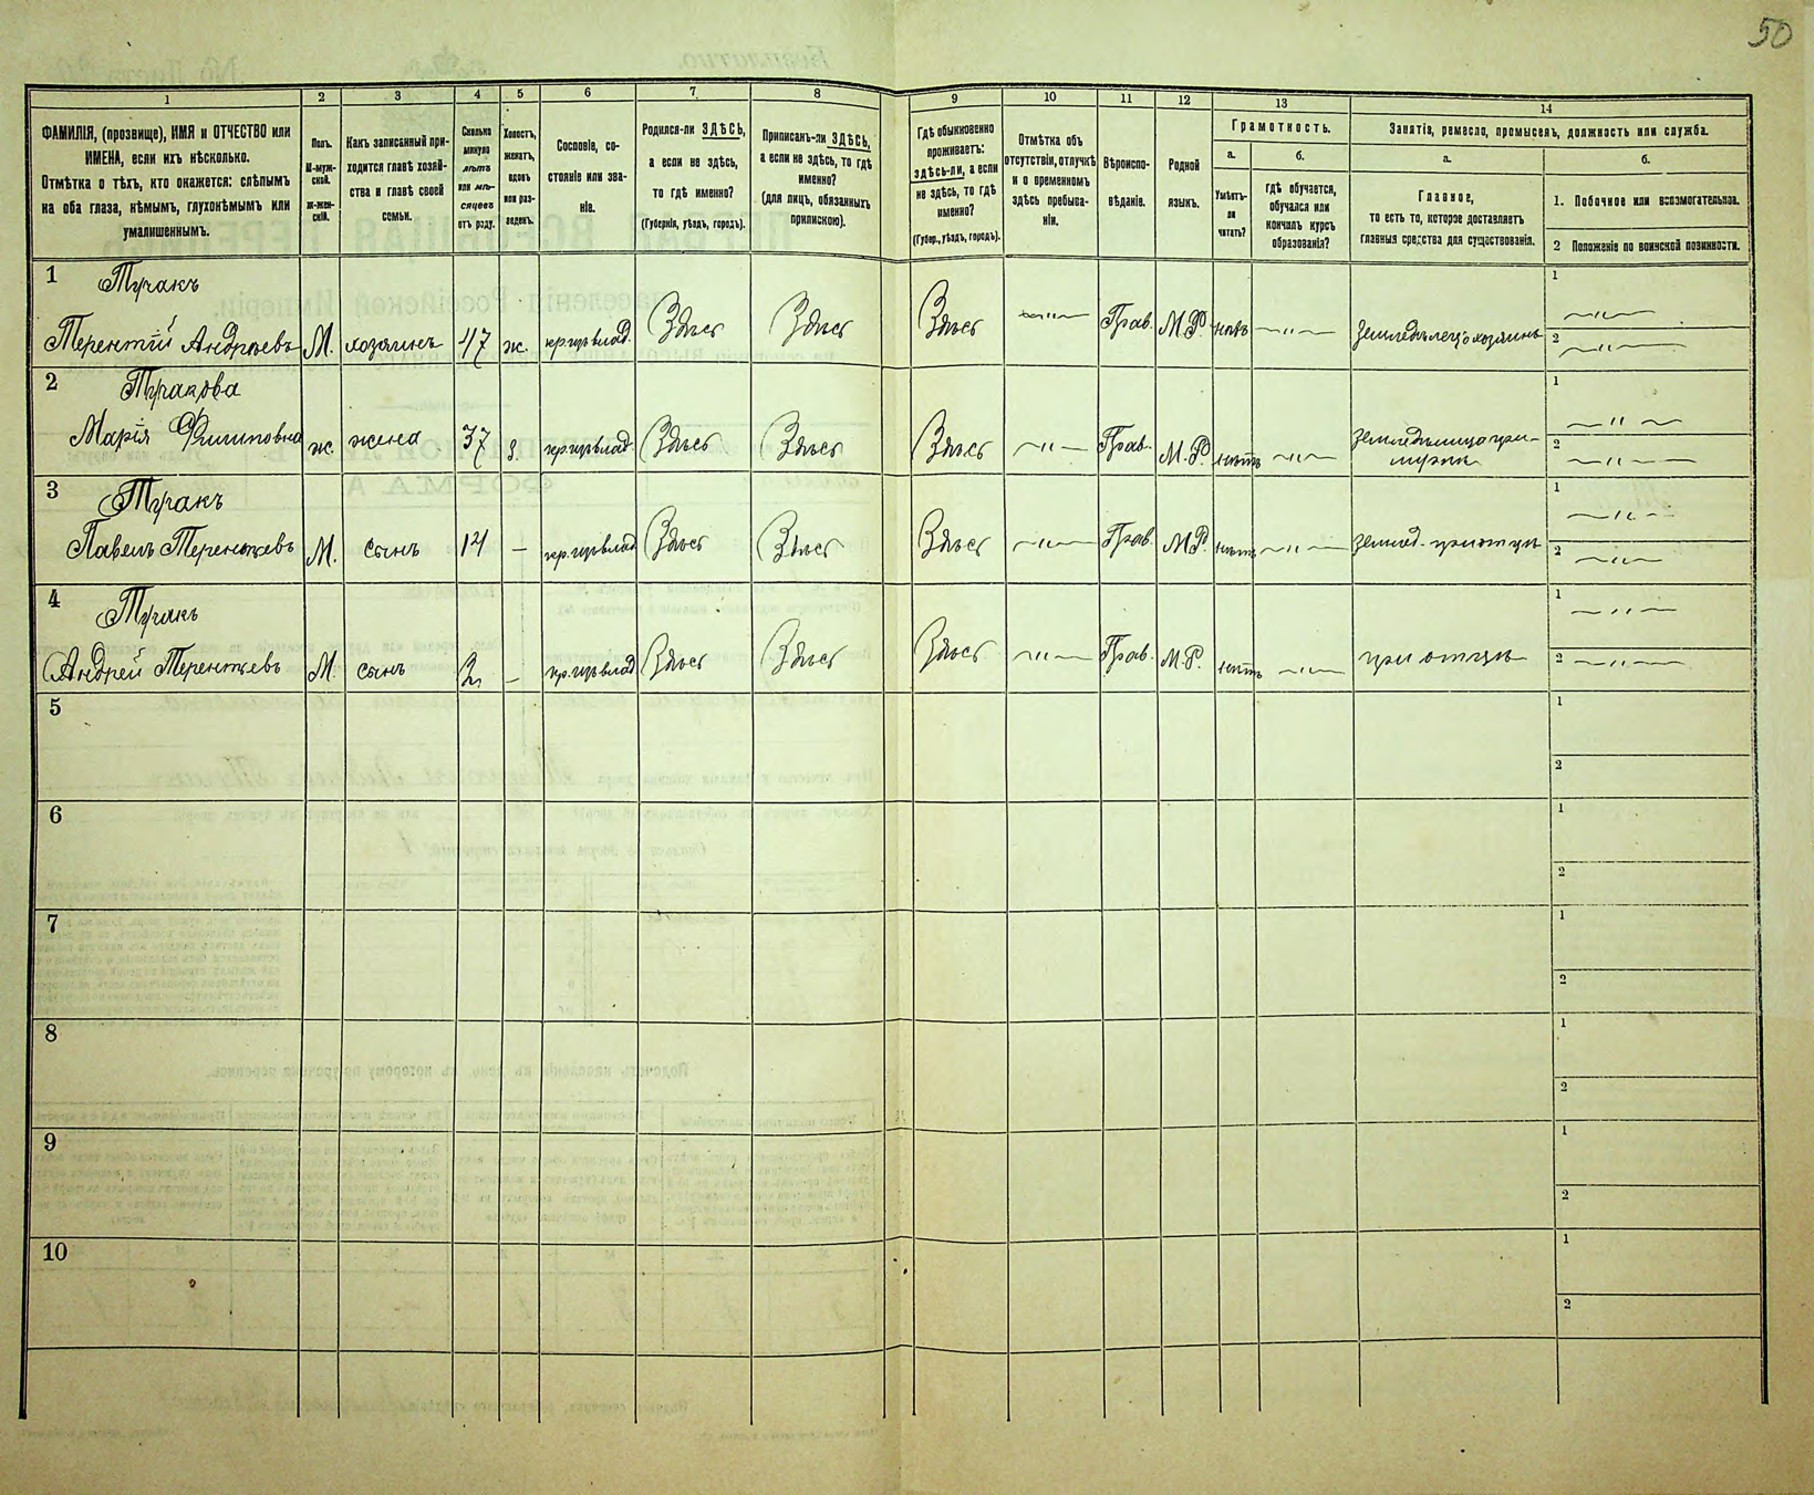 50
1 2 3 4 5 6 7 8 9 10 11 12 13 14
ФАМИЛІЯ, (прозвище), ИМЯ и ОТЧЕСТВО или
ИМЕНА, если ихъ нѣсколько.
Отмѣтка о тѣхъ, кто окажется: слѣпымъ
на оба глаза, нѣмымъ, глухонѣмымъ или
умалишеннымъ.
Полъ.
М-муж-
ской.
ж-жен-
скій.
Какъ записанный при-
ходится главѣ хозяй-
ства и главѣ своей
семьи.
Сколько
минуло
лѣтъ
или мѣ-
сяцевъ
отъ роду.
Холостъ,
женатъ,
вдовъ
или раз-
веденъ.
Сословіе, со-
стояніе или зва-
ніе.
Родился-ли ЗДѢСЬ,
а если не здѣсь,
то гдѣ именно?
(Губернія, уѣздъ, городъ).
Приписанъ-ли ЗДѢСЬ,
а если не здѣсь, то гдѣ
именно?
(для лицъ, обязанныхъ
припискою).
Гдѣ обыкновенно
проживаетъ:
здѣсь-ли, а если
не здѣсь, то гдѣ
именно?
(Губер., уѣздъ, городъ).
Отмѣтка объ
отсутствіи, отлучкѣ
и о временномъ
здѣсь пребыва-
ніи.
Вѣроиспо-
вѣданіе.
Родной
языкъ.
Грамотность.
а. б.
Умѣетъ-
ли
читать?
гдѣ обучается,
обучался или
кончилъ курсъ
образованія?
Занятіе, ремесло, промыселъ, должность или служба.
а. б.
Главное,
то есть то, которое доставляетъ
главныя средства для существованія.
1. Побочное или вспомогательное.
2 Положеніе по воинской повинности.
1 Туракъ
Терентій Андреевъ М. хозяинъ 47 ж. Здѣсь Здѣсь Здѣсь — " — Прав. М.Р. нѣтъ — " — 1 — " —
2 — " —
2 Туракова
Марія Филиповна ж. жена 37 З. Здѣсь Здѣсь Здѣсь — " — Прав. М.Р. нѣтъ — " — 1 — " —
2 — " —
3 Туракъ
Павелъ Терентьевъ М. сынъ 14 — Здѣсь Здѣсь Здѣсь — " — Прав. М.Р. нѣтъ — " — землед. при отцѣ 1 — " —
2 — " —
4 Турак
Андрей Терентьевъ М. сынъ 2 — Здѣсь Здѣсь Здѣсь — " — Прав. М.Р. нѣтъ — " — при отцѣ 1 — " —
2 — " —
5 1
2
6 1
2
7 1
2
8 1
2
9 1
2
10 1
2